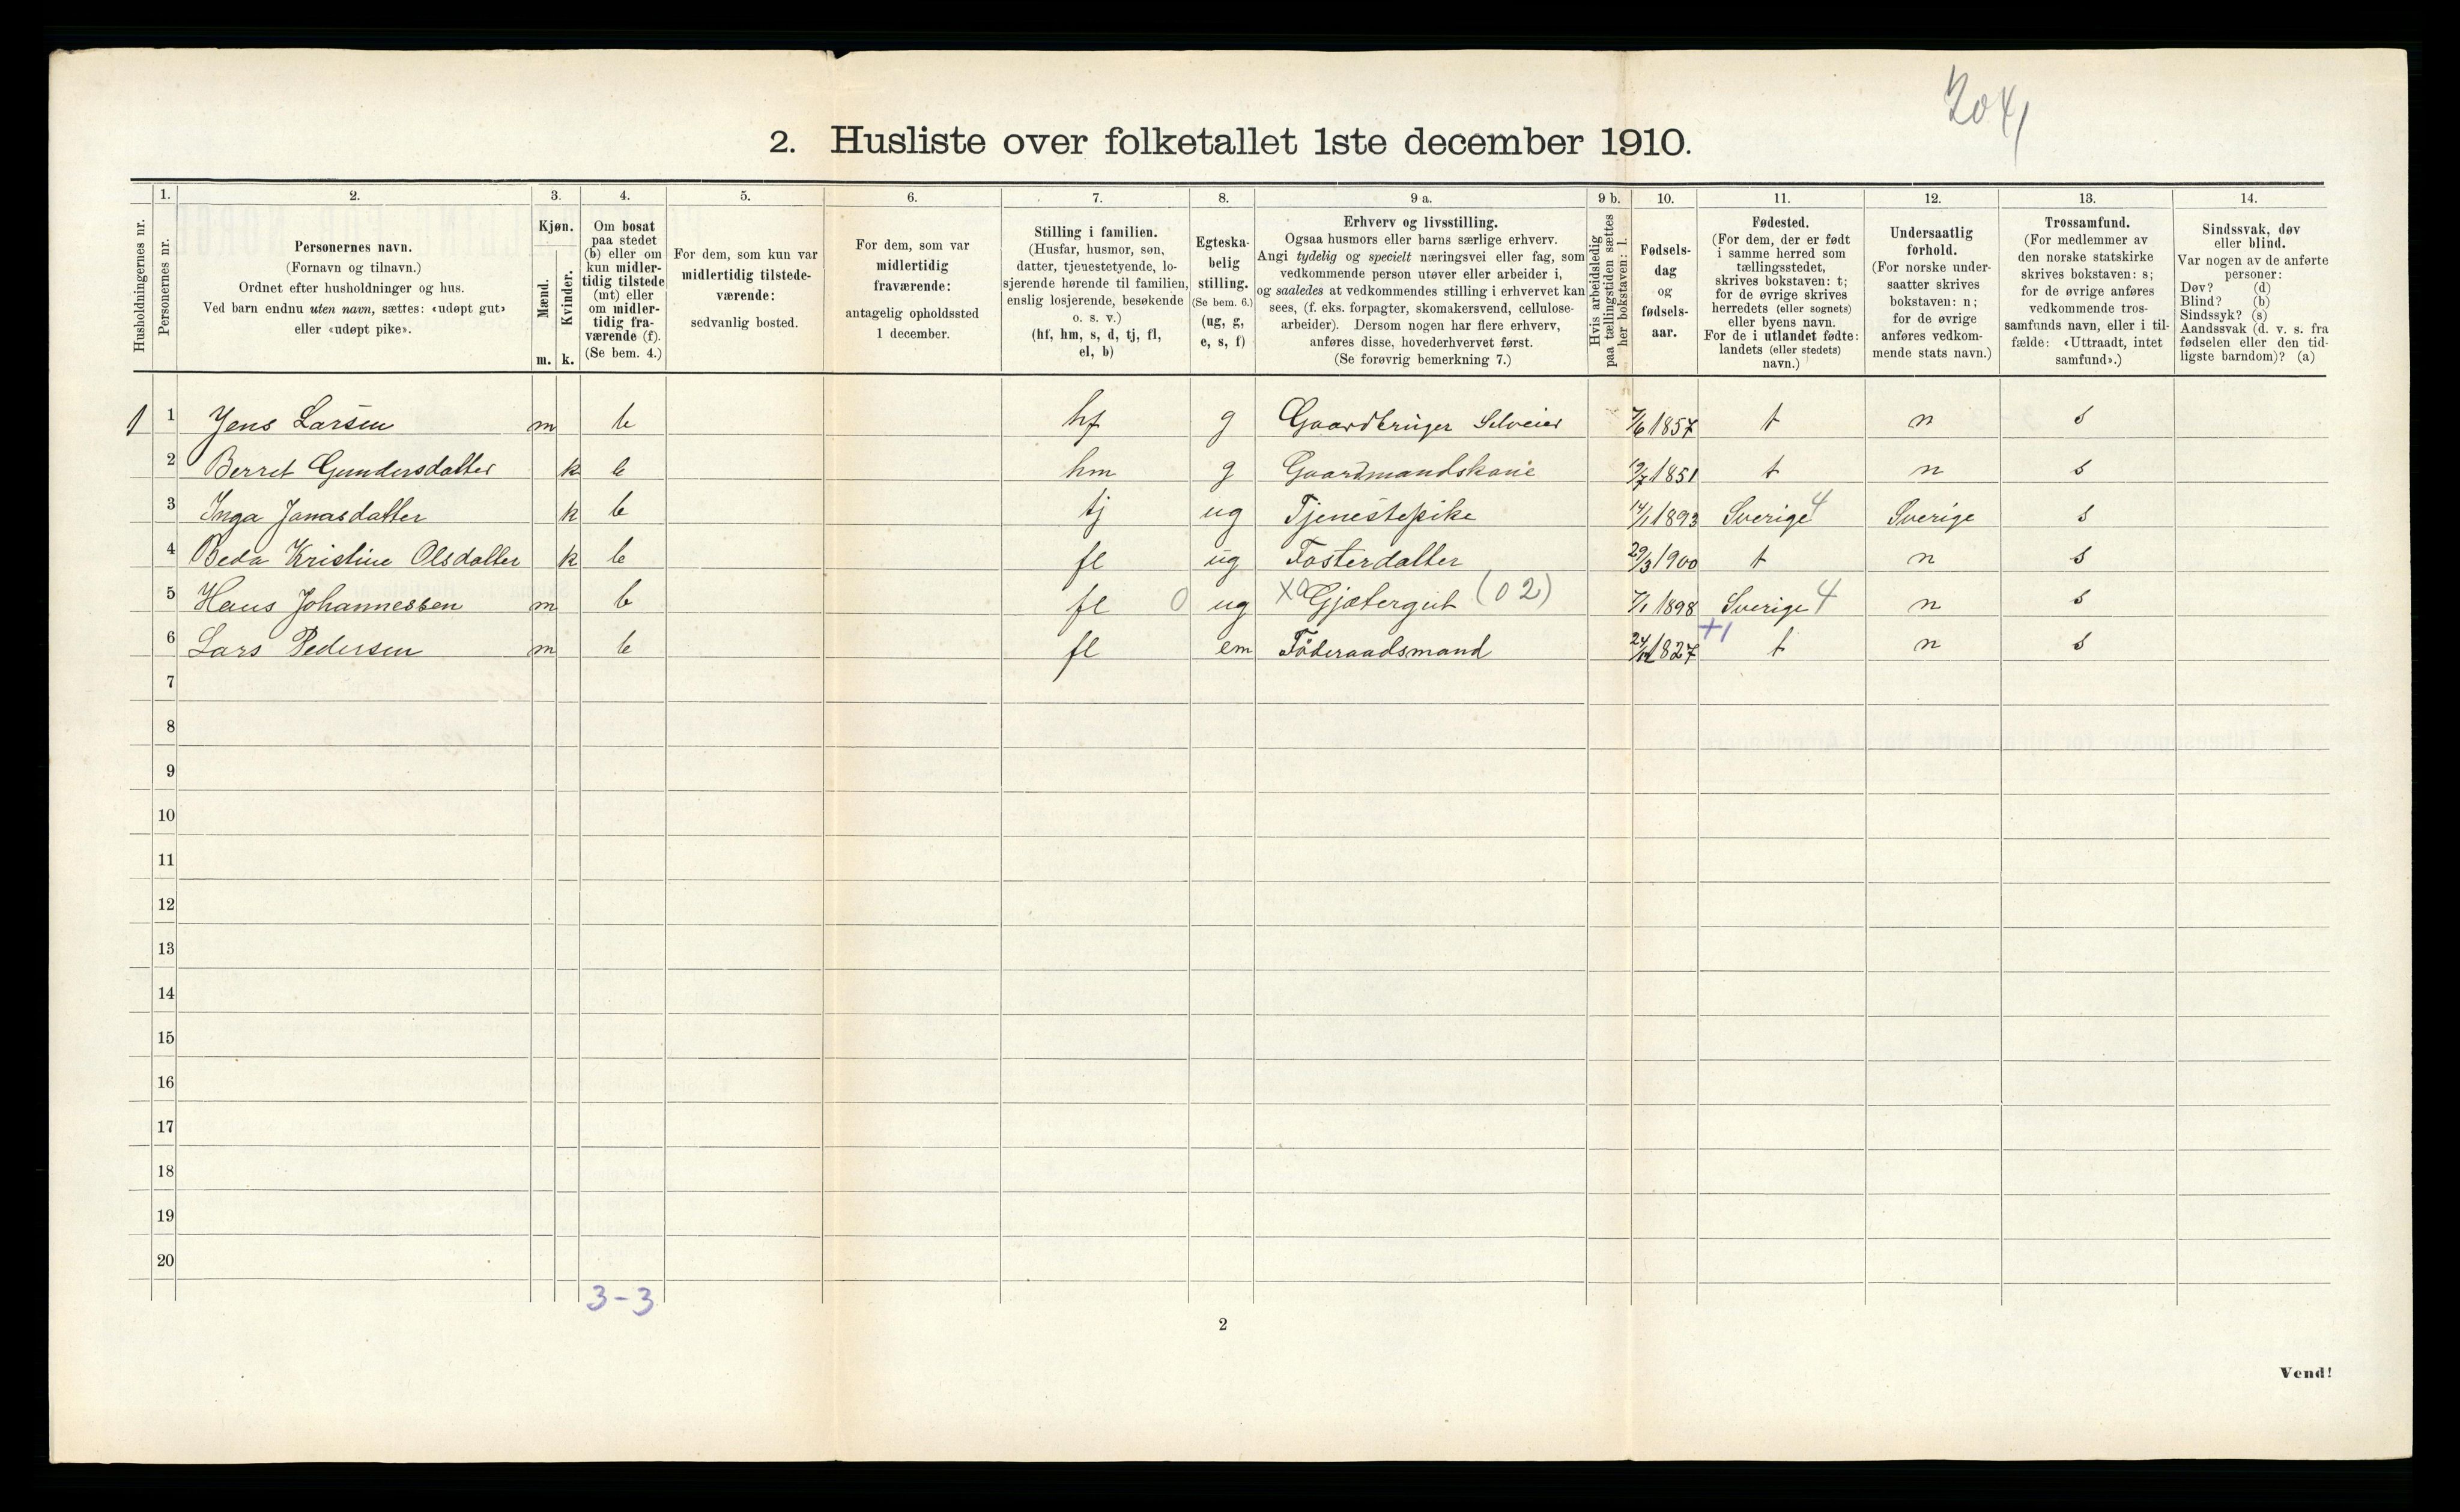 2041
2. Husliste over folketallet 1ste december 1910.
Husholdningernes nr.
1. Personernes nr.
2. Personernes navn. (Fornavn og tilnavn.) Ordnet efter husholdninger og hus. Ved barn endnu uten navn, sættes: «udøpt gut» eller «udøpt pike».
3. Kjøn. Mænd. m. Kvinder. k.
4. Om bosat paa stedet (b) eller om kun midler-tidig tilstede (mt) eller om midler-tidig fra-værende (f). (Se bem. 4.)
5. For dem, som kun var midlertidig tilstede-værende: sedvanlig bosted.
6. For dem, som var midlertidig fraværende: antagelig opholdssted 1 december.
7. Stilling i familien. (Husfar, husmor, søn, datter, tjenestetyende, lo-sjerende hørende til familien, enslig losjerende, besøkende o. s. v.) (hf, hm, s, d, tj, fl, el, b)
8. Egteska-belig stilling. (Se bem. 6.) (ug, g, e, s, f)
9 a. Erhverv og livsstilling. Ogsaa husmors eller barns særlige erhverv. Angi tydelig og specielt næringsvei eller fag, som vedkommende person utøver eller arbeider i, og saaledes at vedkommendes stilling i erhvervet kan sees, (f. eks. forpagter, skomakersvend, cellulose-arbeider). Dersom nogen har flere erhverv, anføres disse, hovederhvervet først. (Se forøvrig bemerkning 7.)
9 b. Hvis arbeidsledig paa tællingstiden sættes her bokstaven: l.
10. Fødsels-dag og fødsels-aar.
11. Fødested. (For dem, der er født i samme herred som tællingsstedet, skrives bokstaven: t; for de øvrige skrives herredets (eller sognets) eller byens navn. For de i utlandet fødte: landets (eller stedets) navn.)
12. Undersaatlig forhold. (For norske under-saatter skrives bokstaven: n; for de øvrige anføres vedkom-mende stats navn.)
13. Trossamfund. (For medlemmer av den norske statskirke skrives bokstaven: s; for de øvrige anføres vedkommende tros-samfunds navn, eller i til-fælde: «Uttraadt, intet samfund».)
14. Sindssvak, døv eller blind. Var nogen av de anførte personer: Døv? (d) Blind? (b) Sindssyk? (s) Aandssvak (d. v. s. fra fødselen eller den tid-ligste barndom)? (a)
1 1 Jens Larsen m b hf g Gaardbruger Selveier 7/6 1857 t n s
2 Berret Gundersdatter k b hm g Gaardmandskone 19/7 1851 t n s
3 Inga Jonasdatter k b tj ug Tjenestepike 14/1 1893 Sverige 4 Sverige s
4 Beda Kristine Olsdatter k b fl ug Fosterdatter 29/3 1900 t n s
5 Hans Johannessen m b fl 0 ug X0 Gjætergut (02) 7/1 1898 Sverige 4 n s
6 Lars Pedersen m b fl em Föderaadsmand 24/12 1827 +1 t n s
7
8
9
10
11
12
13
14
15
16
17
18
19
20
3-3
2
Vend!